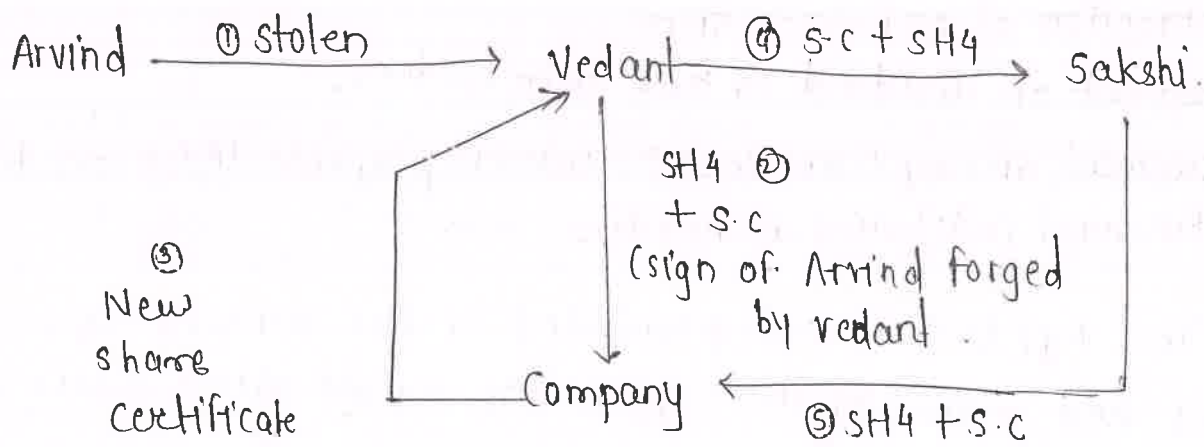 Arvind ① Stolen Vedant ④ S.C + SH4 Sakshi.
SH4 ②
+ S.C
(sign of Arvind forged
by vedant.
③
New
share
certificate
Company
⑤ SH4 + S.C